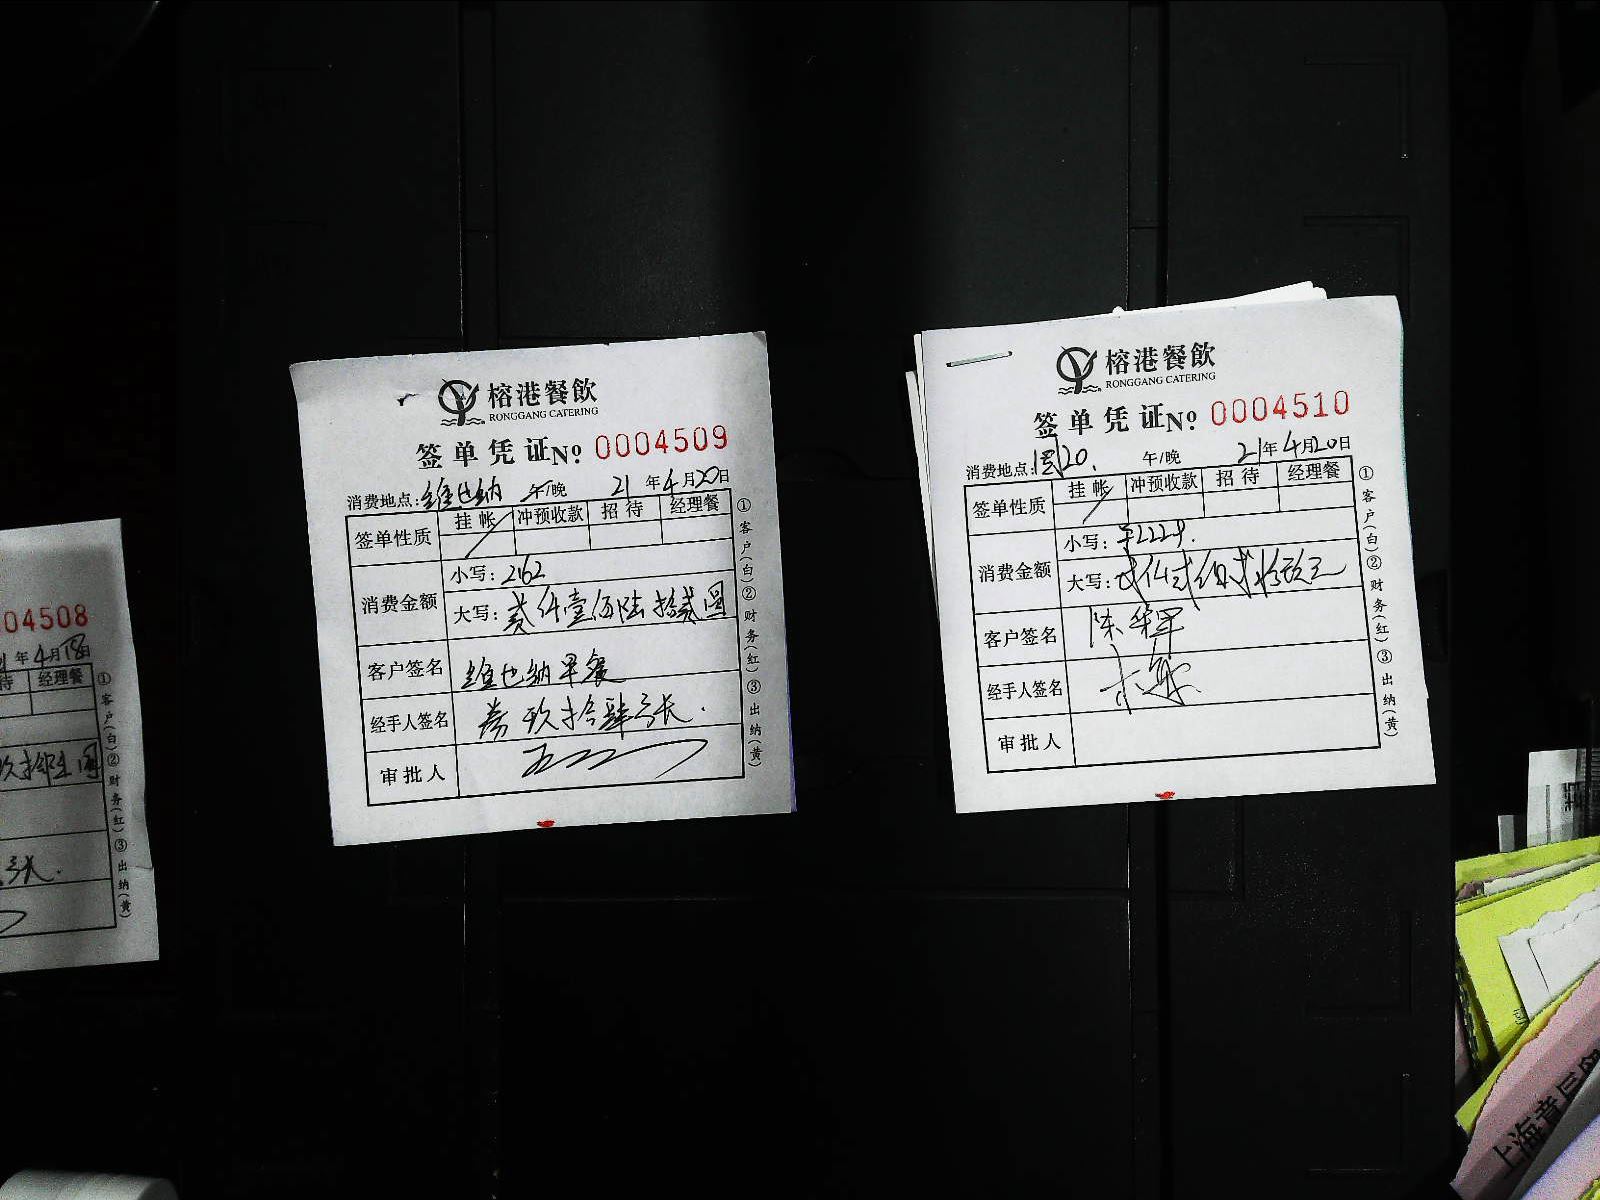 榕港餐飲
RONGGANG CATERING
签单凭证No 0004509
消费地点:维也纳 午/晚 21年4月20日
签单性质 挂帐 冲预收款 招待 经理餐
消费金额
小写: 2162
大写: 贰仟壹佰陆拾贰圆
客户签名 维也纳早餐
经手人签名 券玖拾肆张.
审批人
①客户(白)②财务(红)③出纳(黄)
榕港餐飲
RONGGANG CATERING
签单凭证No 0004510
消费地点: 午/晚 21年4月20日
签单性质 挂帐 冲预收款 招待 经理餐
消费金额
小写:
大写:
客户签名 陈
经手人签名
审批人
①客户(白)②财务(红)③出纳(黄)
04508
年4月18日
待 经理餐
张.
①客户(白)②财务(红)③出纳(黄)
上海音